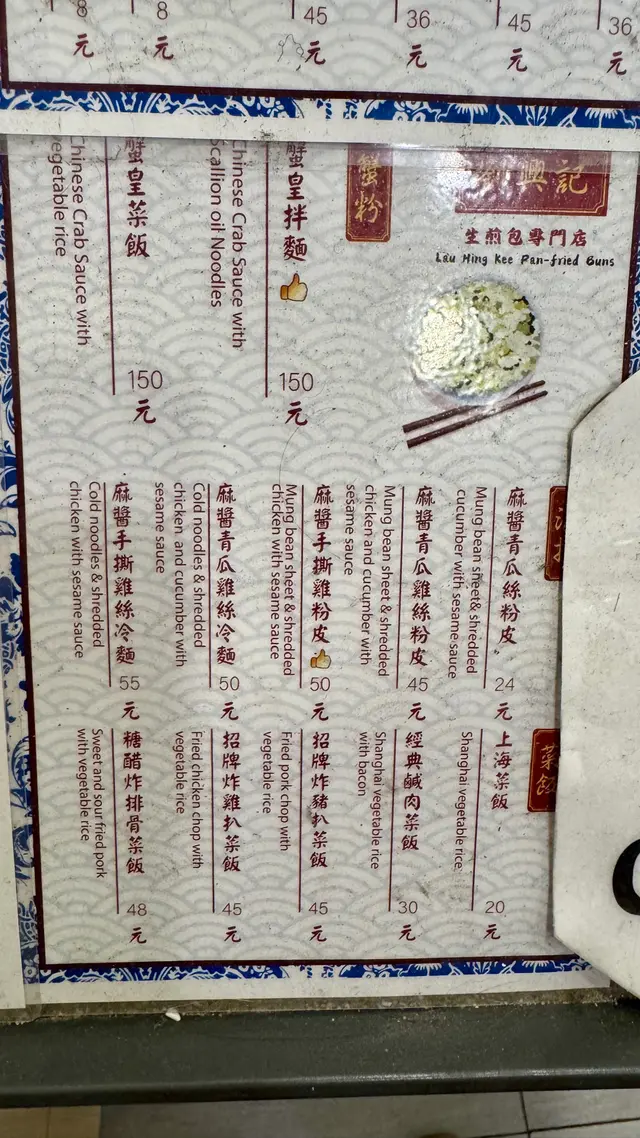 8
元
8
元
45
元
36
元
45
元
36
元
興記
生煎包專門店
Lau Hing Kee Pan-fried Buns
蟹粉
蟹皇拌麵
Chinese Crab Sauce with
Scallion oil Noodles
150
元
蟹皇菜飯
Chinese Crab Sauce with
vegetable rice
150
元
麻醬青瓜絲粉皮
Mung bean sheet& shredded
cucumber with sesame sauce
24
元
麻醬青瓜雞絲粉皮
Mung bean sheet & shredded
chicken and cucumber with
sesame sauce
45
元
麻醬手撕雞絲粉皮
Mung bean sheet & shredded
chicken with sesame sauce
50
元
麻醬青瓜雞絲冷麵
Cold noodles & shredded
chicken and cucumber with
sesame sauce
50
元
麻醬手撕雞絲冷麵
Cold noodles & shredded
chicken with sesame sauce
55
元
菜飯
上海菜飯
Shanghai vegetable rice
20
元
經典鹹肉菜飯
Shanghai vegetable rice
with bacon
30
元
招牌炸豬扒菜飯
Fried pork chop with
vegetable rice
45
元
招牌炸雞扒菜飯
Fried chicken chop with
vegetable rice
45
元
糖醋炸排骨菜飯
Sweet and sour fried pork
with vegetable rice
48
元